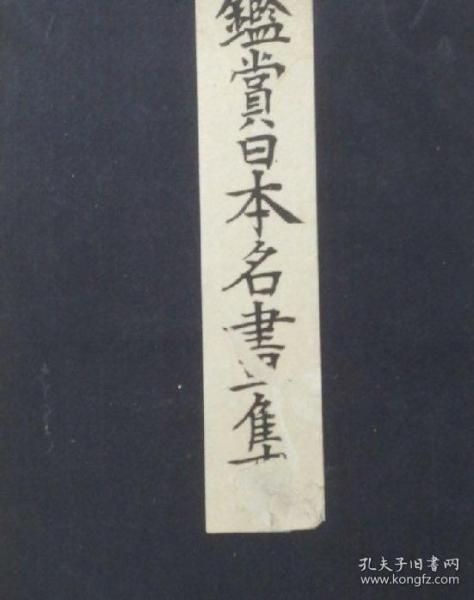 鑑賞日本名畫集
孔夫子旧书网
www.kongfz.com